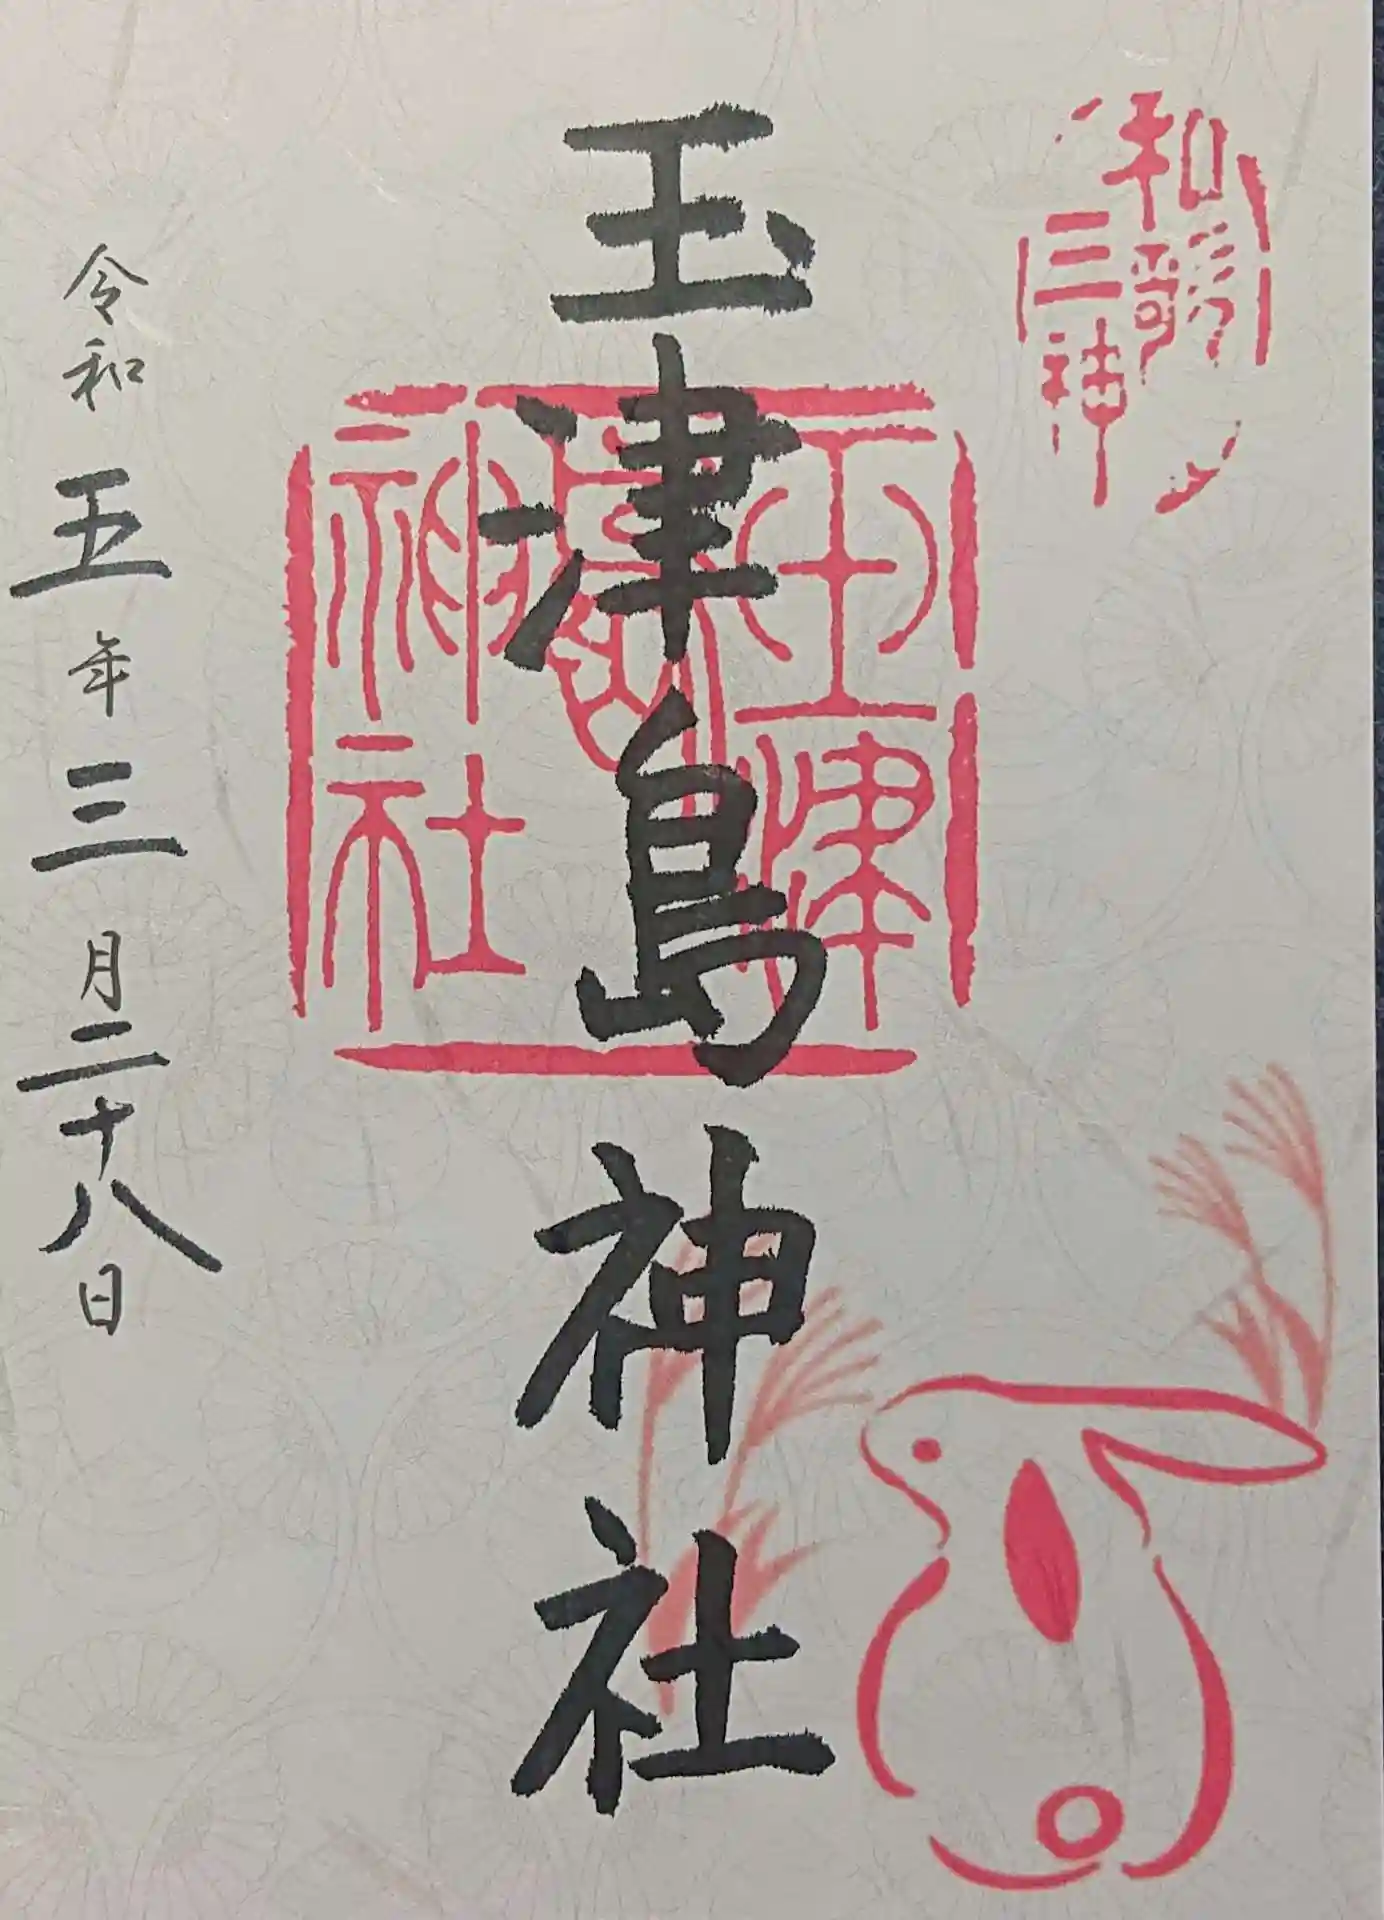 和歌
三神
玉津島神社
玉津
島
神社
令和五年三月二十八日